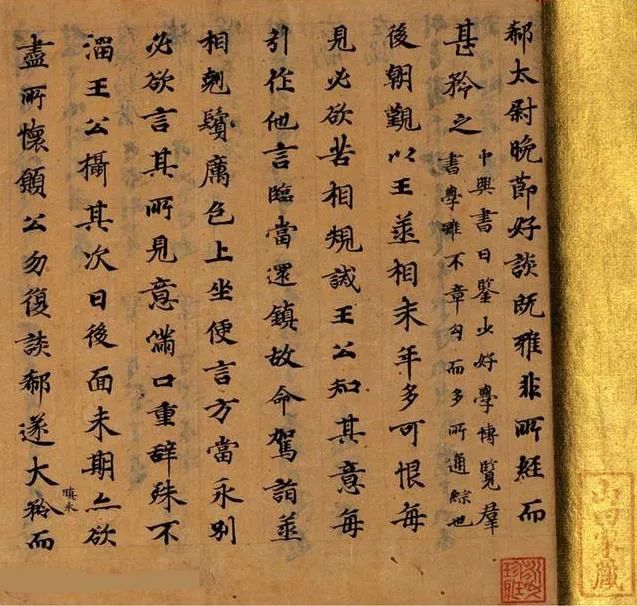 郗太尉晚節好談既雅非所經而
甚矜之
中興書曰鑒少好學博覽羣
書學雖不章句而多所通綜也
後朝覲以王丞相末年多可恨每
見必欲苦相規誡王公知其意每
引作他言臨當還鎮故命駕詣丞
相翹鬢厲色上坐便言方當永別
必欲言其所見意滿口重辭殊不
溜王公攝其次曰後面未期亦欲
盡所懷願公勿復談郗遂大矜而
瞋
山田家藏